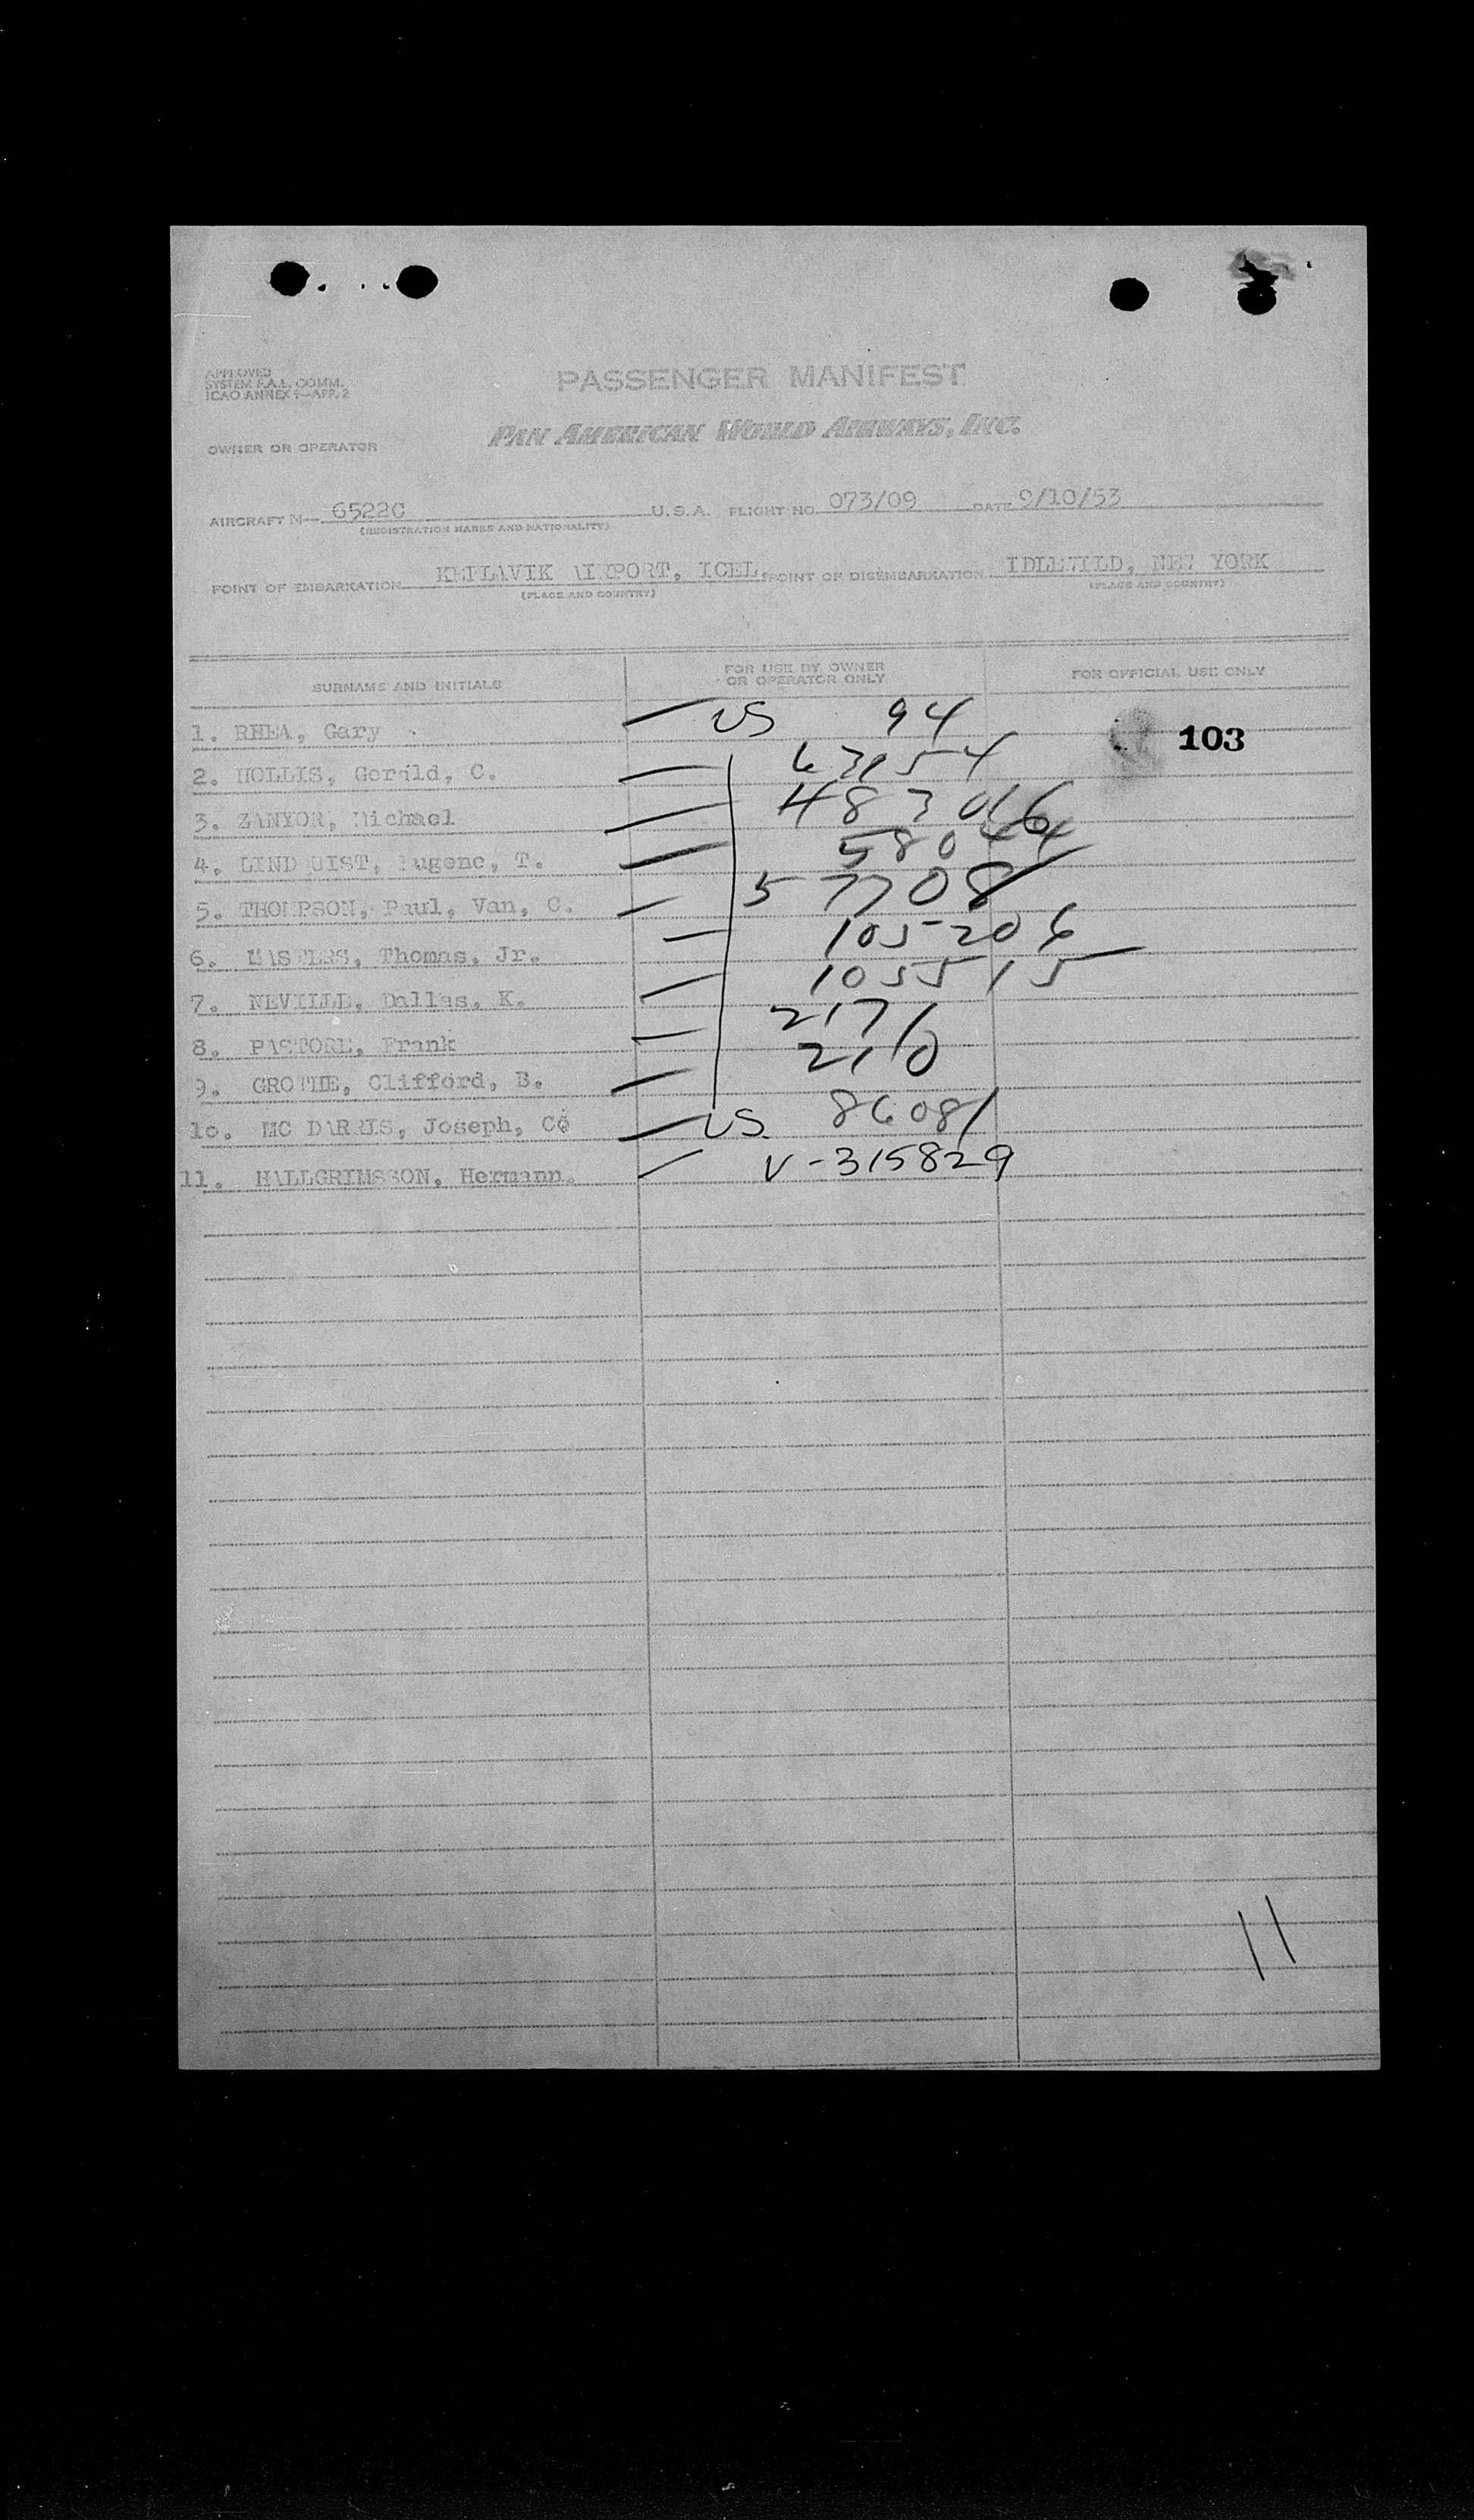 APPROVED
SYSTEM F.A.L. COMM.
ICAO ANNEX 9-APP. 2
PASSENGER MANIFEST
PAN AMERICAN WORLD AIRWAYS, INC.
OWNER OR OPERATOR
AIRCRAFT N— 6522C U.S.A. FLIGHT NO. 073/09 DATE 9/10/53
(REGISTRATION MARKS AND NATIONALITY)
POINT OF EMBARKATION KEFLAVIK AIRPORT, ICEL. POINT OF DISEMBARKATION IDLEWILD, NEW YORK
(PLACE AND COUNTRY) (PLACE AND COUNTRY)
SURNAME AND INITIALS FOR USE BY OWNER OR OPERATOR ONLY FOR OFFICIAL USE ONLY
1. RHEA, Gary US 94 103
2. HOLLIS, Gerald, C.
3. ZANYOR, Michael
4. LINDQUIST, Eugene, T. 58044
5. THOMPSON, Paul, Van, C. 57708
6. MASTERS, Thomas, Jr. 105206
7. NEVILLE, Dallas, K. 1055515
8. PASTORE, Frank 2171
9. GROTHE, Clifford, B.
10. MC DARRIS, Joseph, C. US 86081
11. HALLGRIMSSON, Hermann. V-315829
11